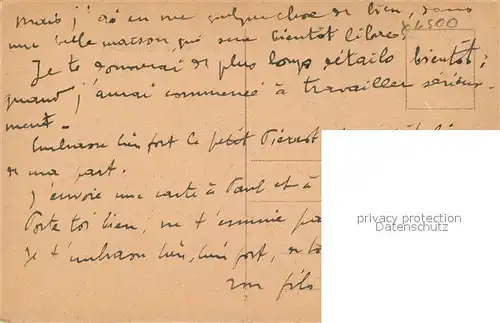 mais j'ai en vue quelque chose de bien, dans
une belle maison qui sera bientôt libre.
x 6500
Je te donnerai de plus longs détails bientôt,
quand j'aurai commencé à travailler sérieuse-
ment.
Embrasse bien fort le petit Pierrot
de ma part.
J'envoie une carte à Paul et à
Porte toi bien, ne t'ennuie pas
Je t'embrasse bien, bien fort, de
ton fils
2
privacy protection
Datenschutz